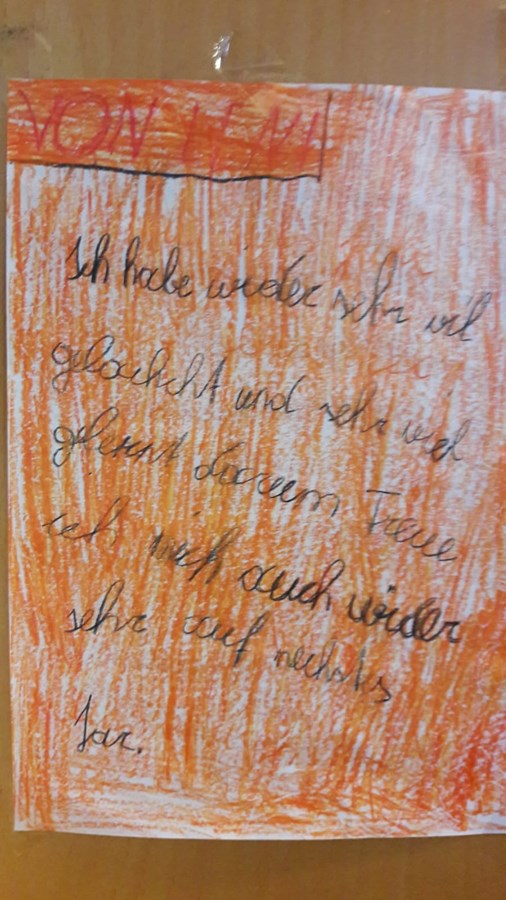 VON LENI
Ich habe wieder sehr viel
gelachcht und sehr viel
gelernt darum freue
ich mich auch wieder
sehr auf nechstes
Jar.